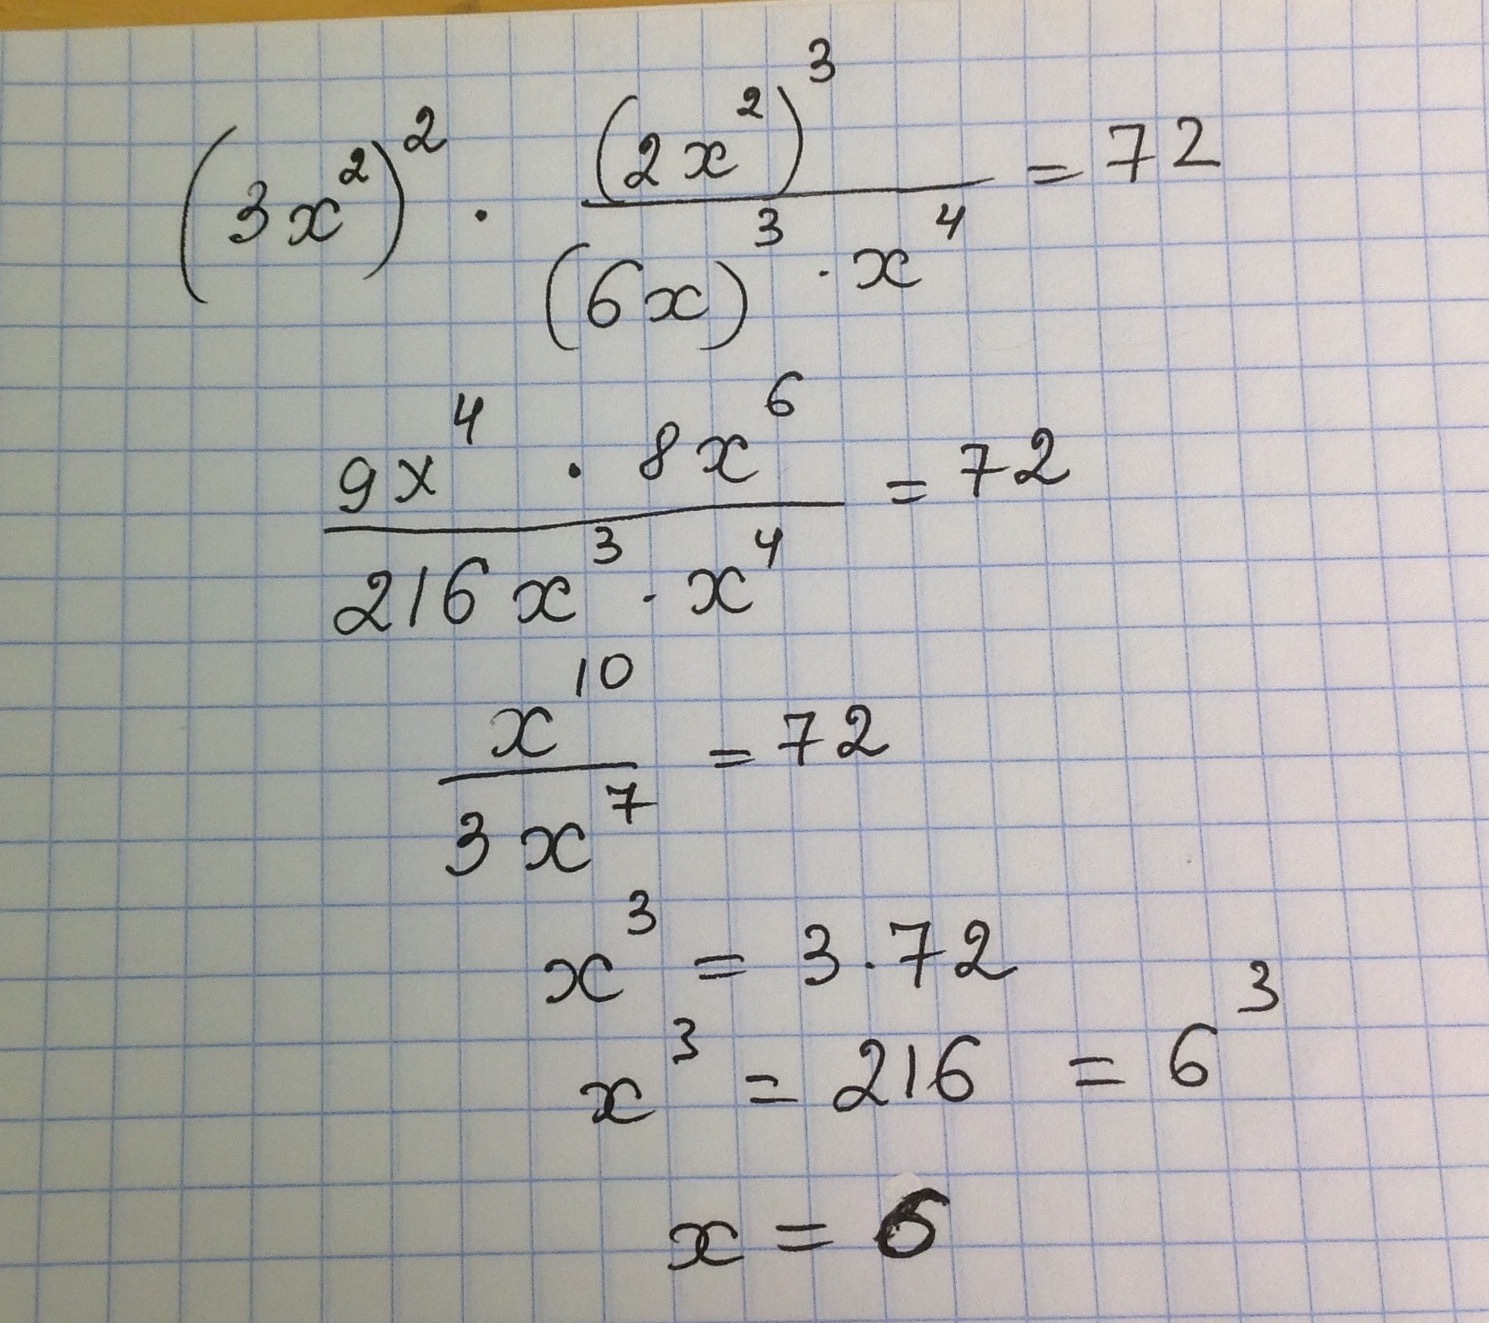 (3x²)² · (2x²)³ / ((6x)³ · x⁴) = 72
9x⁴ · 8x⁶ / (216x³ · x⁴) = 72
x¹⁰ / (3x⁷) = 72
x³ = 3 · 72
x³ = 216 = 6³
x = 6